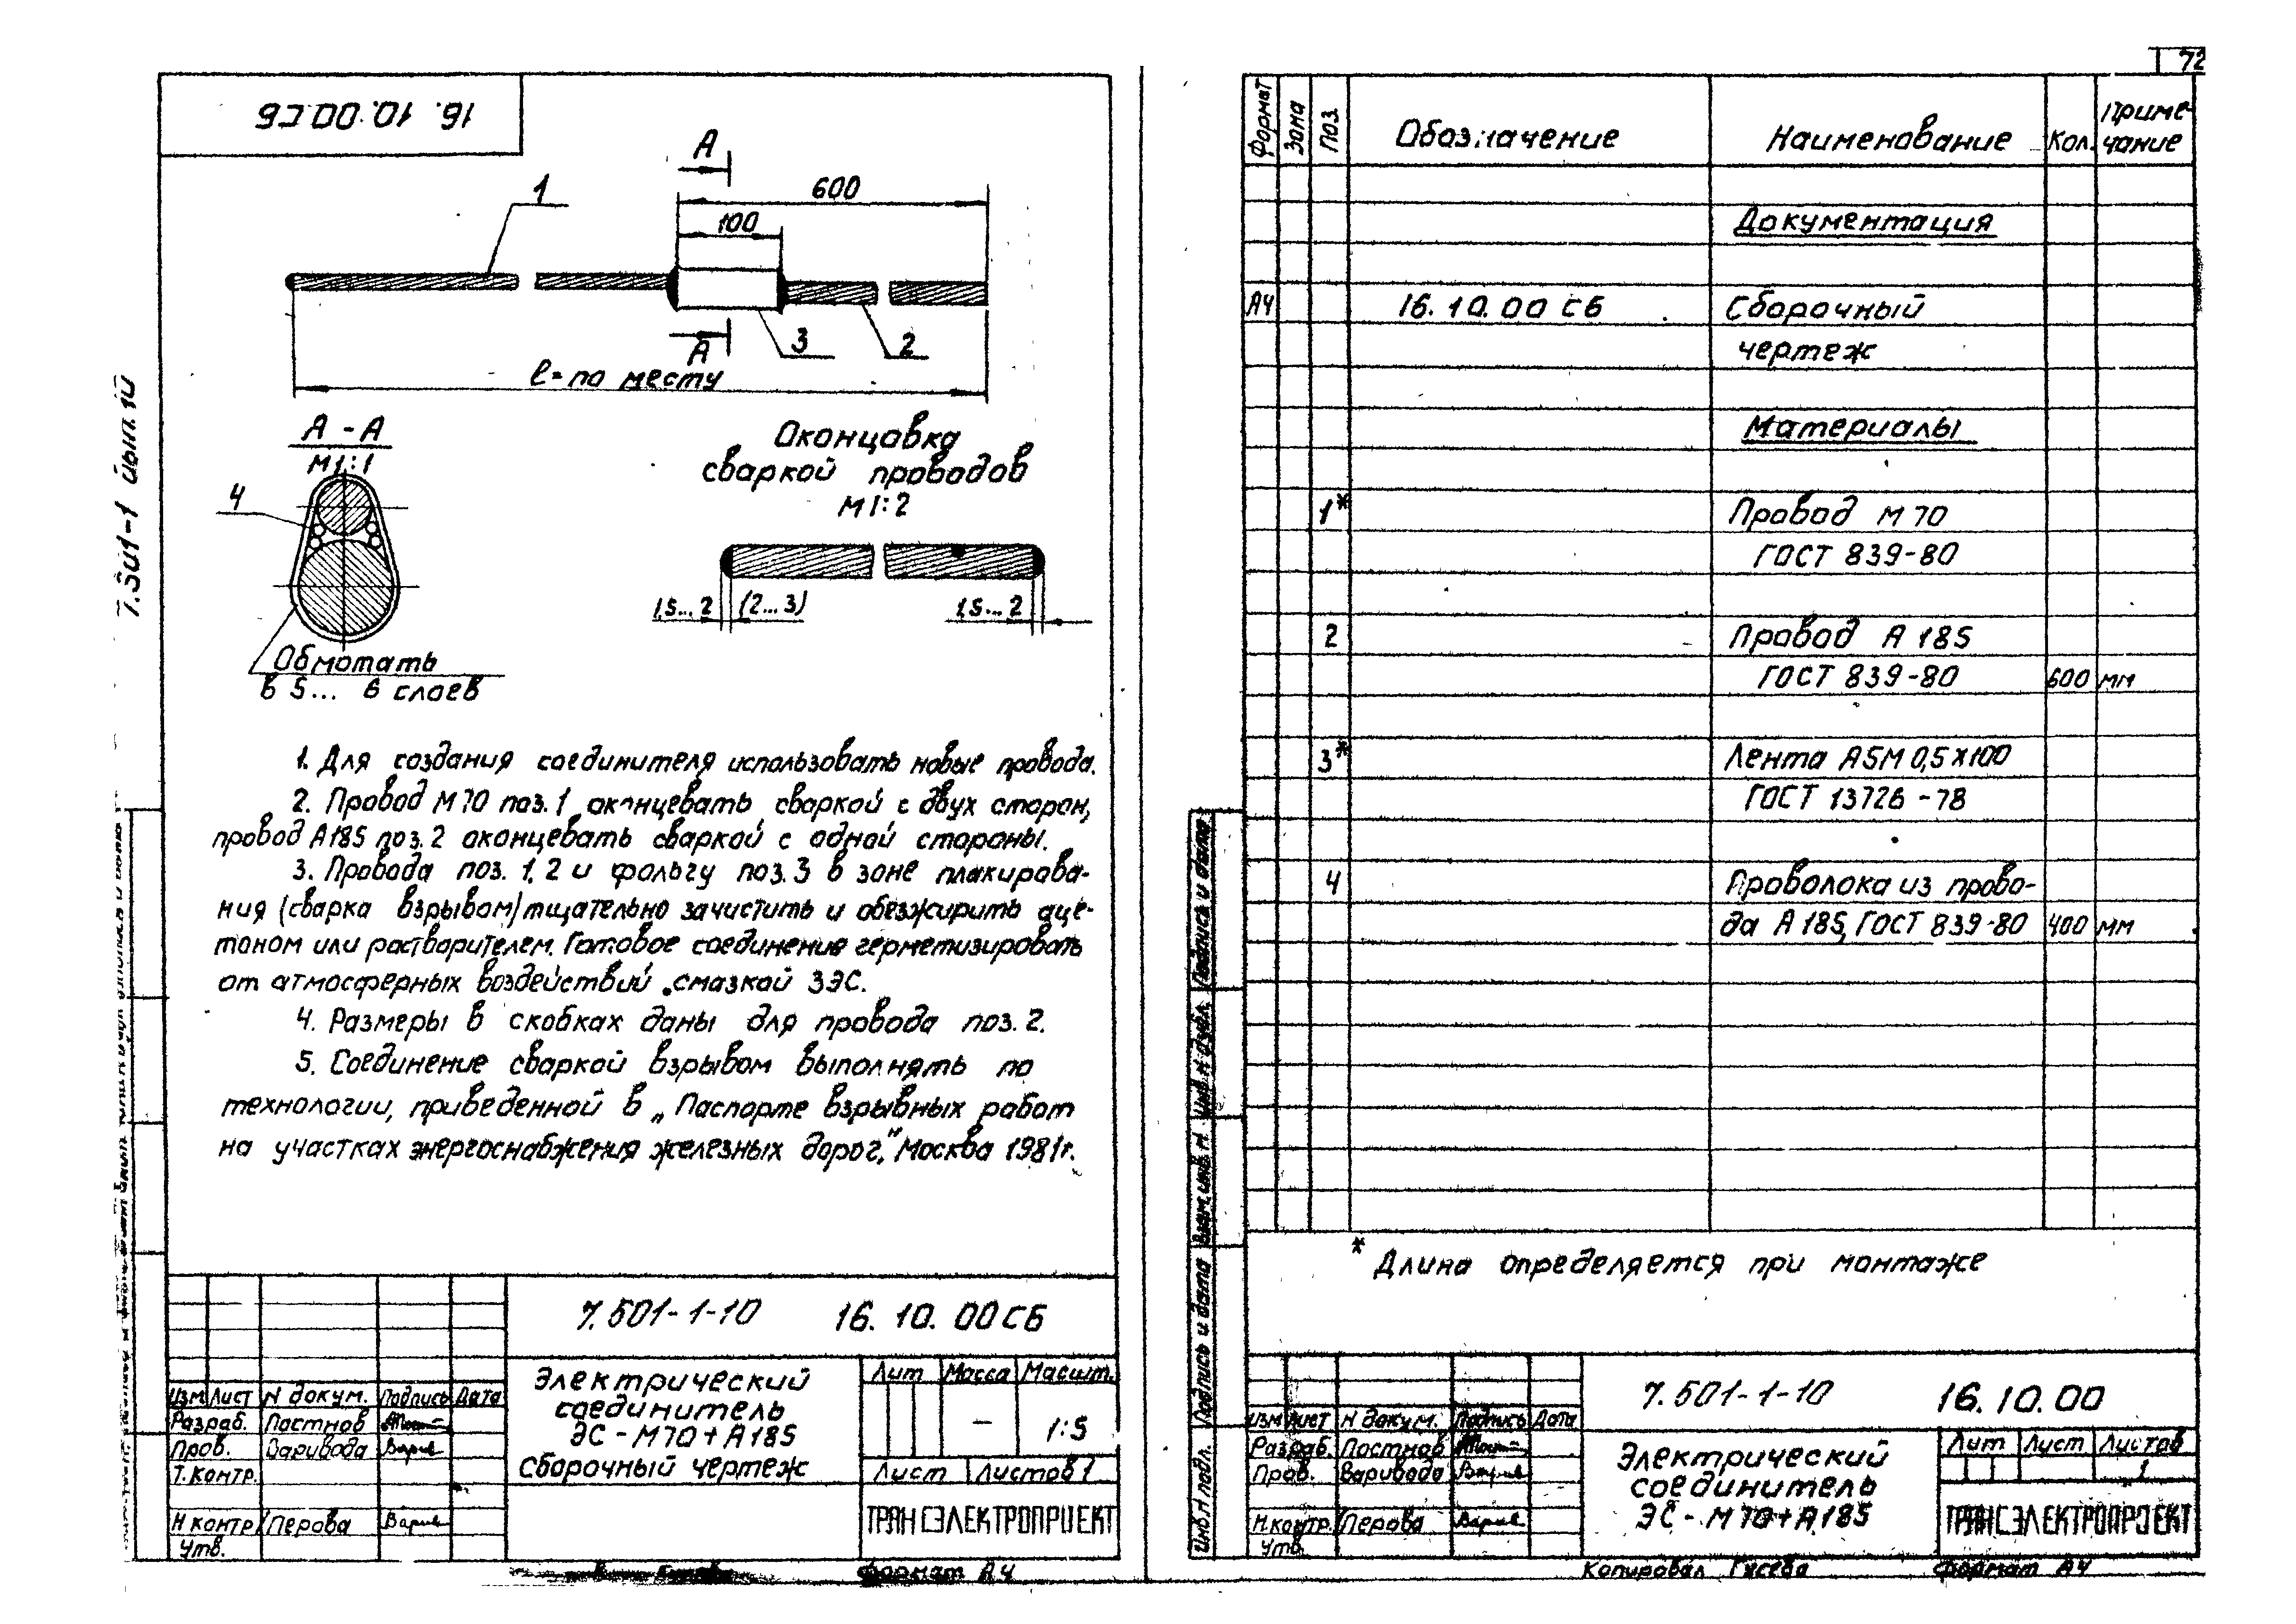 72
16.10.00СБ
А
600
1
100
А
3
2
ℓ=по месту
7.501-1 вып.10
А-А
М1:1
4
Обмотать
в 5... 6 слоев
Оконцовка
сваркой проводов
М1:2
1,5...2 (2...3) 1,5...2
1. Для создания соединителя использовать новые провода.
2. Провод М70 поз.1 оконцевать сваркой с двух сторон,
провод А185 поз.2 оконцевать сваркой с одной стороны.
3. Провода поз. 1,2 и фольгу поз.3 в зоне плакирова-
ния (сварка взрывом) тщательно зачистить и обезжирить аце-
тоном или растворителем. Готовое соединение герметизировать
от атмосферных воздействий смазкой ЗЭС.
4. Размеры в скобках даны для провода поз.2.
5. Соединение сваркой взрывом выполнять по
технологии, приведенной в „Паспорте взрывных работ
на участках энергоснабжения железных дорог," Москва 1981г.
7.501-1-10 16.10.00СБ
Электрический
соединитель
ЭС-М70+А185
Сборочный чертеж
Лит Масса Масшт.
– 1:5
Лист Листов 1
ТРАНСЭЛЕКТРОПРОЕКТ
Изм Лист N докум. Подпись Дата
Разраб. Постнов
Пров. Варивода
Т.контр.
Н контр Перова
Утв.
Формат А4
Формат Зона Поз. Обозначение Наименование Кол. Приме-
чание
Документация
А4 16.10.00 СБ Сборочный
чертеж
Материалы
1* Провод М70
ГОСТ 839-80
2 Провод А185
ГОСТ 839-80 600 мм
3* Лента А5М 0,5х100
ГОСТ 13726-78
4 Проволока из прово-
да А185, ГОСТ 839-80 400 мм
* Длина определяется при монтаже
Инв.N подл. Подпись и дата Взам.инв.N Инв.N дубл. Подпись и дата
7.501-1-10 16.10.00
Изм Лист N докум. Подпись Дата
Разраб. Постнов
Пров. Варивода
Н.контр. Перова
Утв.
Электрический
соединитель
ЭС-М70+А185
Лит Лист Листов
1
ТРАНСЭЛЕКТРОПРОЕКТ
Копировал Гусева Формат А4